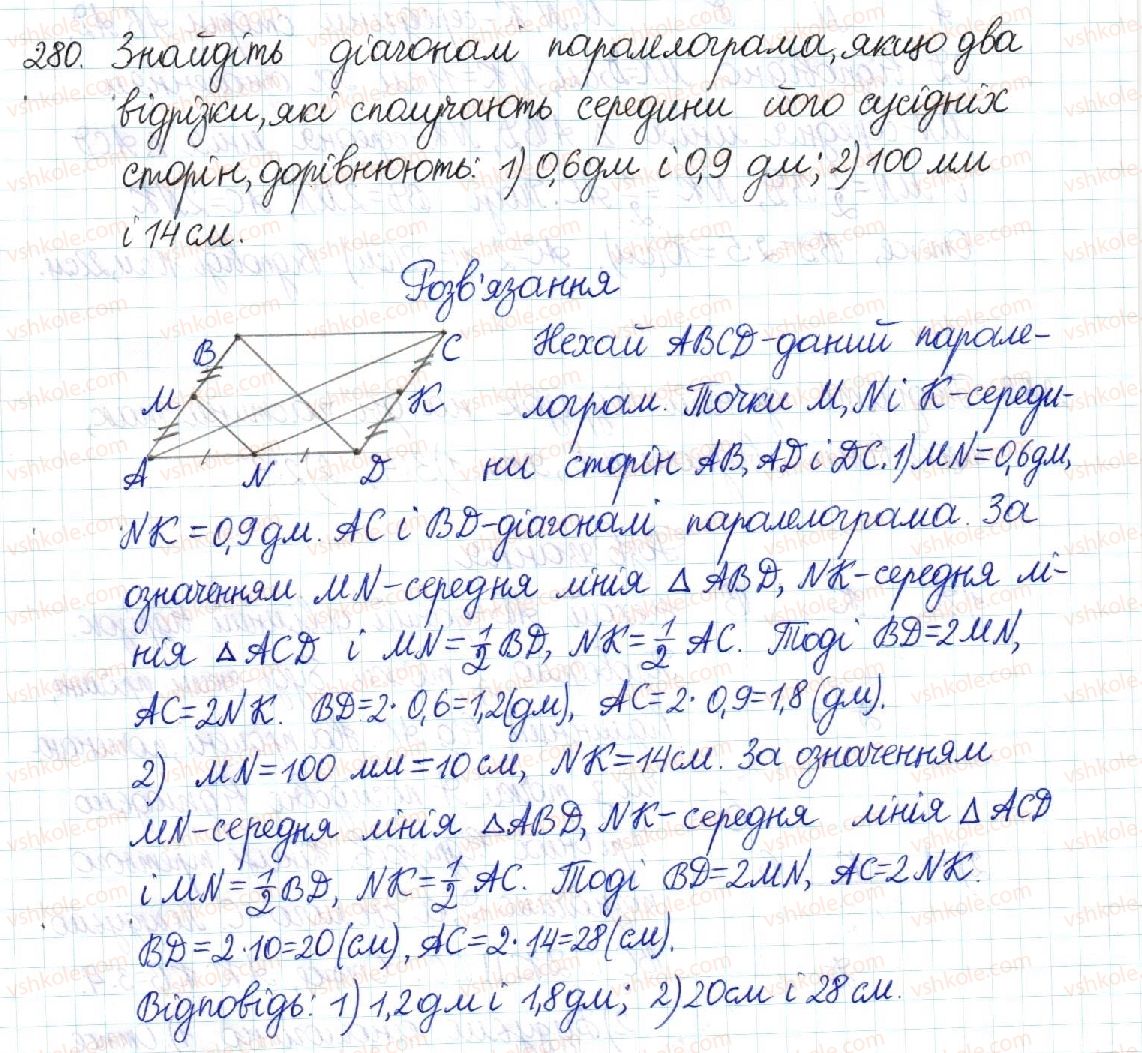 280. Знайдіть діагоналі паралелограма, якщо два
відрізки, які сполучають середини його сусідніх
сторін, дорівнюють: 1) 0,6 дм і 0,9 дм; 2) 100 мм
і 14 см.
Розв'язання
B
C
M
K
A
N
D
Нехай ABCD - даний парале-
лограм. Точки M, N і K - середи-
ни сторін AB, AD і DC. 1) MN = 0,6 дм,
NK = 0,9 дм. AC і BD - діагоналі паралелограма. За
означенням MN - середня лінія △ ABD, NK - середня лі-
нія △ ACD і MN = 1/2 BD, NK = 1/2 AC. Тоді BD = 2MN,
AC = 2NK. BD = 2 · 0,6 = 1,2 (дм), AC = 2 · 0,9 = 1,8 (дм).
2) MN = 100 мм = 10 см, NK = 14 см. За означенням
MN - середня лінія △ ABD, NK - середня лінія △ ACD
і MN = 1/2 BD, NK = 1/2 AC. Тоді BD = 2MN, AC = 2NK.
BD = 2 · 10 = 20 (см), AC = 2 · 14 = 28 (см).
Відповідь: 1) 1,2 дм і 1,8 дм; 2) 20 см і 28 см.
vshkole.com